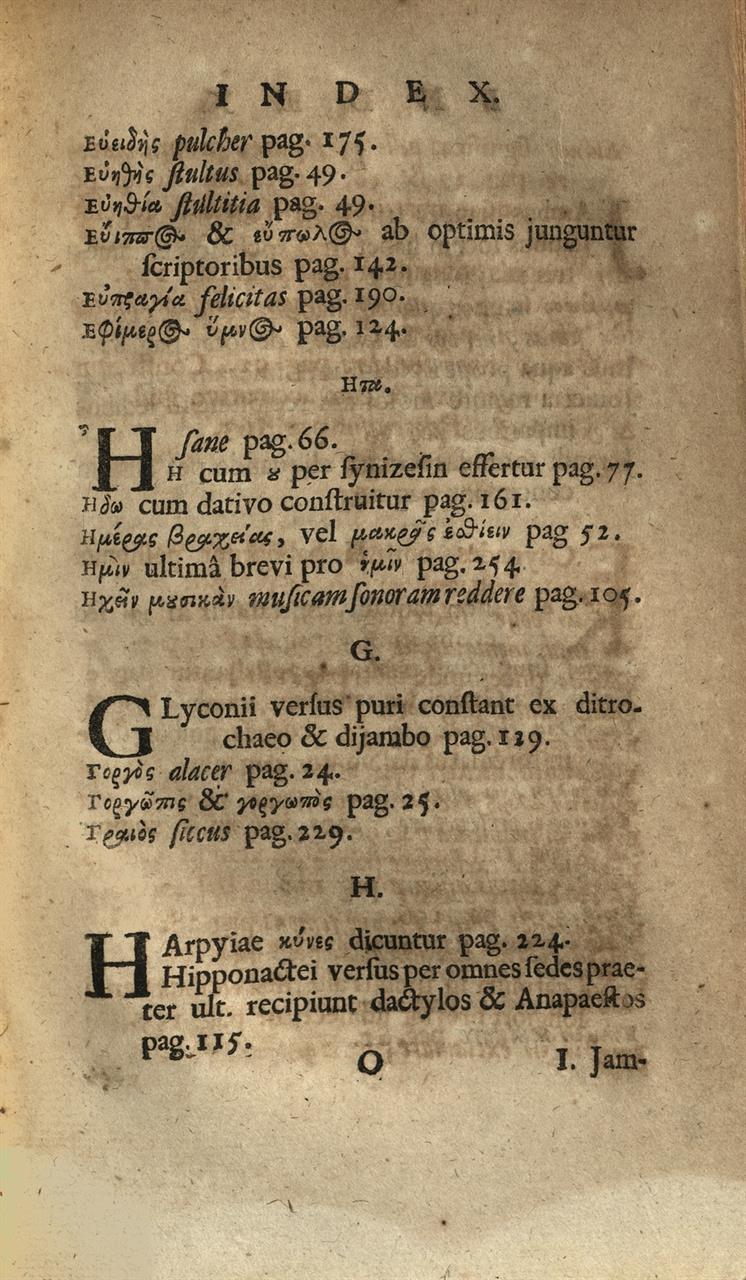 INDEX.
Εὐειδὴς pulcher pag. 175.
Εὐηθὴς ſtultus pag. 49.
Εὐηθία ſtultitia pag. 49.
Εὔιππος & εὔπωλος ab optimis junguntur
ſcriptoribus pag. 142.
Εὐπραγία felicitas pag. 190.
Εφίμερος ὕμνος pag. 124.
Ητα.
Ἦ ſane pag. 66.
Η cum ȣ per ſynizeſin effertur pag. 77.
Ηδω cum dativo conſtruitur pag. 161.
Ημέρας βραχείας, vel μακρᾶς ἐσθίειν pag 52.
Ημὶν ultimâ brevi pro ἡμῖν pag. 254
Ηχεῖν μȣσικὰν muſicam ſonoram reddere pag. 105.
G.
GLyconii verſus puri conſtant ex ditro-
chaeo & dijambo pag. 129.
Γοργὸς alacer pag. 24.
Γοργῶπις & γοργωπὸς pag. 25.
Γραιὸς ſiccus pag. 229.
H.
HArpyiae κύνες dicuntur pag. 224.
Hipponactei verſus per omnes ſedes prae-
ter ult. recipiunt dactylos & Anapaeſtos
pag. 115.
O I. Jam-